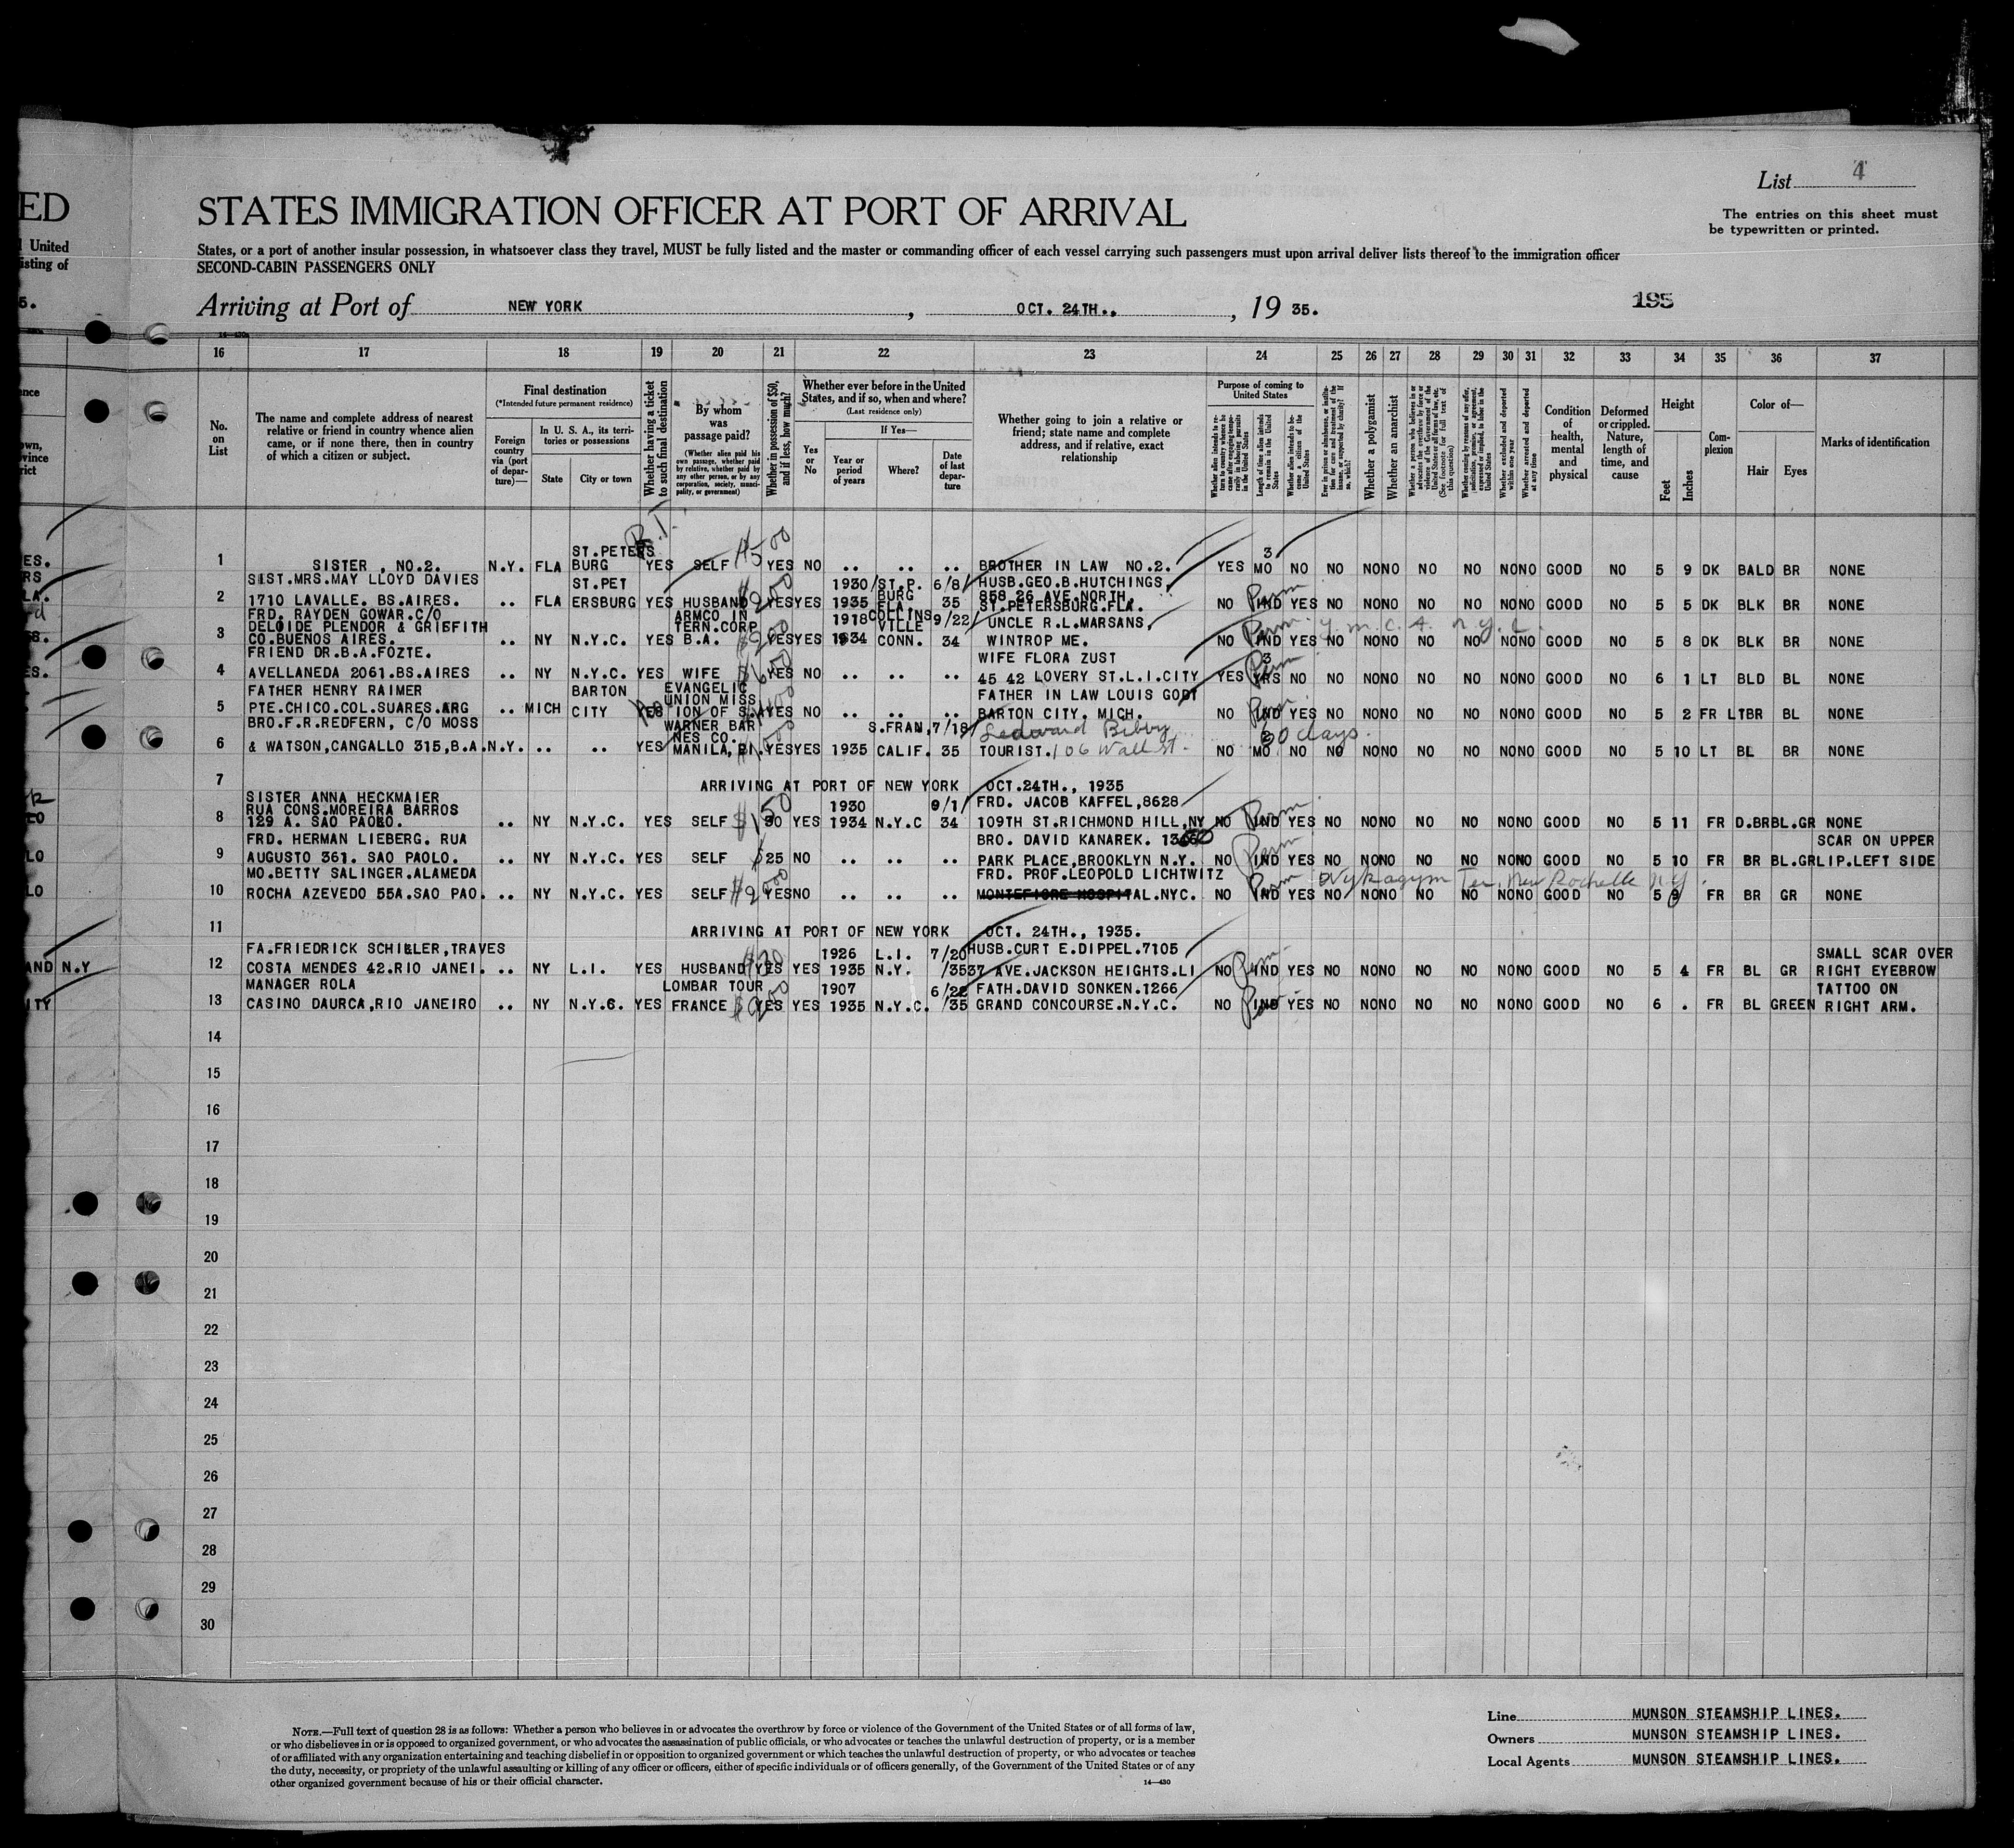 List 4
The entries on this sheet must
be typewritten or printed.
ED
STATES IMMIGRATION OFFICER AT PORT OF ARRIVAL
United
States, or a port of another insular possession, in whatsoever class they travel, MUST be fully listed and the master or commanding officer of each vessel carrying such passengers must upon arrival deliver lists thereof to the immigration officer
isting of
SECOND-CABIN PASSENGERS ONLY
5.
Arriving at Port of NEW YORK, OCT. 24TH., 19 35.
195
16 17 18 19 20 21 22 23 24 25 26 27 28 29 30 31 32 33 34 35 36 37
No. on List
The name and complete address of nearest relative or friend in country whence alien came, or if none there, then in country of which a citizen or subject.
Final destination
(*Intended future permanent residence)
Foreign country via (port of departure)—
In U. S. A., its territories or possessions
State
City or town
Whether having a ticket to such final destination
By whom was passage paid?
(Whether alien paid his own passage, whether paid by relative, whether paid by any other person, or by any corporation, society, municipality, or government)
Whether in possession of $50, and if less, how much?
Whether ever before in the United States, and if so, when and where?
(Last residence only)
Yes or No
If Yes—
Year or period of years
Where?
Date of last departure
Whether going to join a relative or friend; state name and complete address, and if relative, exact relationship
Purpose of coming to United States
Whether alien intends to return to country whence he came after engaging temporarily in laboring pursuits in the United States
Length of time alien intends to remain in the United States
Whether alien intends to become a citizen of the United States
Ever in prison or almshouse, or institution for care and treatment of the insane, or supported by charity? If so, which?
Whether a polygamist
Whether an anarchist
Whether coming by reason of any offer, solicitation, promise, or agreement, expressed or implied, to labor in the United States
Whether excluded and deported within one year
Whether arrested and deported at any time
Condition of health, mental and physical
Deformed or crippled. Nature, length of time, and cause
Height
Feet
Inches
Complexion
Color of—
Hair
Eyes
Marks of identification
R.T.
1 SISTER , NO.2. N.Y. FLA ST.PETERS BURG YES SELF $500 YES NO .. .. .. BROTHER IN LAW NO.2. YES 3 MO NO NO NO NO NO NO NO NO GOOD NO 5 9 DK BALD BR NONE
2 SIST.MRS.MAY LLOYD DAVIES 1710 LAVALLE. BS.AIRES. .. FLA ST.PET ERSBURG YES HUSBAND $200 YES YES 1930/ 1935 ST.P. BURG FLA. 6/8/ 35 HUSB.GEO.B.HUTCHINGS. 858 26 AVE.NORTH, ST.PETERSBURG.FLA. NO IND Perm YES NO NO NO NO NO NO NO GOOD NO 5 5 DK BLK BR NONE
3 FRD. RAYDEN GOWAR.C/O DELOIDE PLENDOR & GRIFFITH CO.BUENOS AIRES. .. NY N.Y.C. YES ARMCO IN TERN.CORP B.A. $200 YES YES 1918 1934 COLLINS VILLE CONN. 9/22/ 34 UNCLE R.L.MARSANS, WINTROP ME. NO IND Perm YES NO NO NO NO NO NO NO GOOD NO 5 8 DK BLK BR NONE
4 FRIEND DR.B.A.FOZTE. AVELLANEDA 2061.BS.AIRES .. NY N.Y.C. YES WIFE YES NO .. .. .. WIFE FLORA ZUST 45 42 LOVERY ST.L.I.CITY YES 3 YRS Perm NO NO NO NO NO NO NO NO GOOD NO 6 1 LT BLD BL NONE
5 FATHER HENRY RAIMER PTE.CHICO.COL.SUARES.ARG .. MICH BARTON CITY YES EVANGELIC UNION MISS ION OF S.A YES NO .. .. .. FATHER IN LAW LOUIS GODT BARTON CITY. MICH. NO IND Perm YES NO NO NO NO NO NO NO GOOD NO 5 2 FR LTBR BL NONE
6 BRO.F.R.REDFERN, C/O MOSS & WATSON,CANGALLO 315,B.A. N.Y. .. .. YES WARNER BAR NES CO. MANILA,PI. YES YES 1935 S.FRAN, CALIF. 7/18/ 35 Ledward Bibby TOURIST. 106 Wall st. NO MO. 30 days. NO NO NO NO NO NO NO NO GOOD NO 5 10 LT BL BR NONE
7 ARRIVING AT PORT OF NEW YORK OCT.24TH., 1935
8 SISTER ANNA HECKMAIER RUA CONS.MOREIRA BARROS 129 A. SAO PAOLO. .. NY N.Y.C. YES SELF $150 YES 1930 1934 N.Y.C 9/1/ 34 FRD. JACOB KAFFEL,8628 109TH ST.RICHMOND HILL,NY NO IND Perm YES NO NO NO NO NO NO NO GOOD NO 5 11 FR D.BR BL.GR NONE
9 FRD. HERMAN LIEBERG. RUA AUGUSTO 361. SAO PAOLO. .. NY N.Y.C. YES SELF $25 NO .. .. .. BRO. DAVID KANAREK. PARK PLACE,BROOKLYN N.Y. NO IND Perm YES NO NO NO NO NO NO NO GOOD NO 5 10 FR BR BL.GR SCAR ON UPPER LIP.LEFT SIDE
10 MO.BETTY SALINGER.ALAMEDA ROCHA AZEVEDO 55A.SAO PAO. .. NY N.Y.C. YES SELF YES NO .. .. .. FRD. PROF.LEOPOLD LICHTWITZ MONTEFIORE HOSPITAL.NYC. Wykagym Ter, New Rochelle N.Y. NO IND Perm YES NO NO NO NO NO NO NO GOOD NO 5 9 FR BR GR NONE
11 ARRIVING AT PORT OF NEW YORK OCT. 24TH., 1935.
12 FA.FRIEDRICK SCHILLER,TRAVES COSTA MENDES 42.RIO JANEI. .. NY L.I. YES HUSBAND $20 YES YES 1926 1935 L.I. N.Y. 7/20 /35 HUSB.CURT E.DIPPEL.7105 37 AVE.JACKSON HEIGHTS.LI NO IND Perm YES NO NO NO NO NO NO NO GOOD NO 5 4 FR BL GR SMALL SCAR OVER RIGHT EYEBROW
13 MANAGER ROLA CASINO DAURCA,RIO JANEIRO .. NY N.Y.C. YES LOMBAR TOUR FRANCE $200 YES YES 1907 1935 N.Y.C. 6/22 /35 FATH.DAVID SONKEN.1266 GRAND CONCOURSE.N.Y.C. NO IND YES NO NO NO NO NO NO NO GOOD NO 6 . FR BL GREEN TATTOO ON RIGHT ARM.
AND N.Y
ITY
14
15
16
17
18
19
20
21
22
23
24
25
26
27
28
29
30
NOTE.—Full text of question 28 is as follows: Whether a person who believes in or advocates the overthrow by force or violence of the Government of the United States or of all forms of law,
or who disbelieves in or is opposed to organized government, or who advocates the assassination of public officials, or who advocates or teaches the unlawful destruction of property, or is a member
of or affiliated with any organization entertaining and teaching disbelief in or opposition to organized government or which teaches the unlawful destruction of property, or who advocates or teaches
the duty, necessity, or propriety of the unlawful assaulting or killing of any officer or officers, either of specific individuals or of officers generally, of the Government of the United States or of any
other organized government because of his or their official character.
14—430
Line MUNSON STEAMSHIP LINES.
Owners MUNSON STEAMSHIP LINES.
Local Agents MUNSON STEAMSHIP LINES.